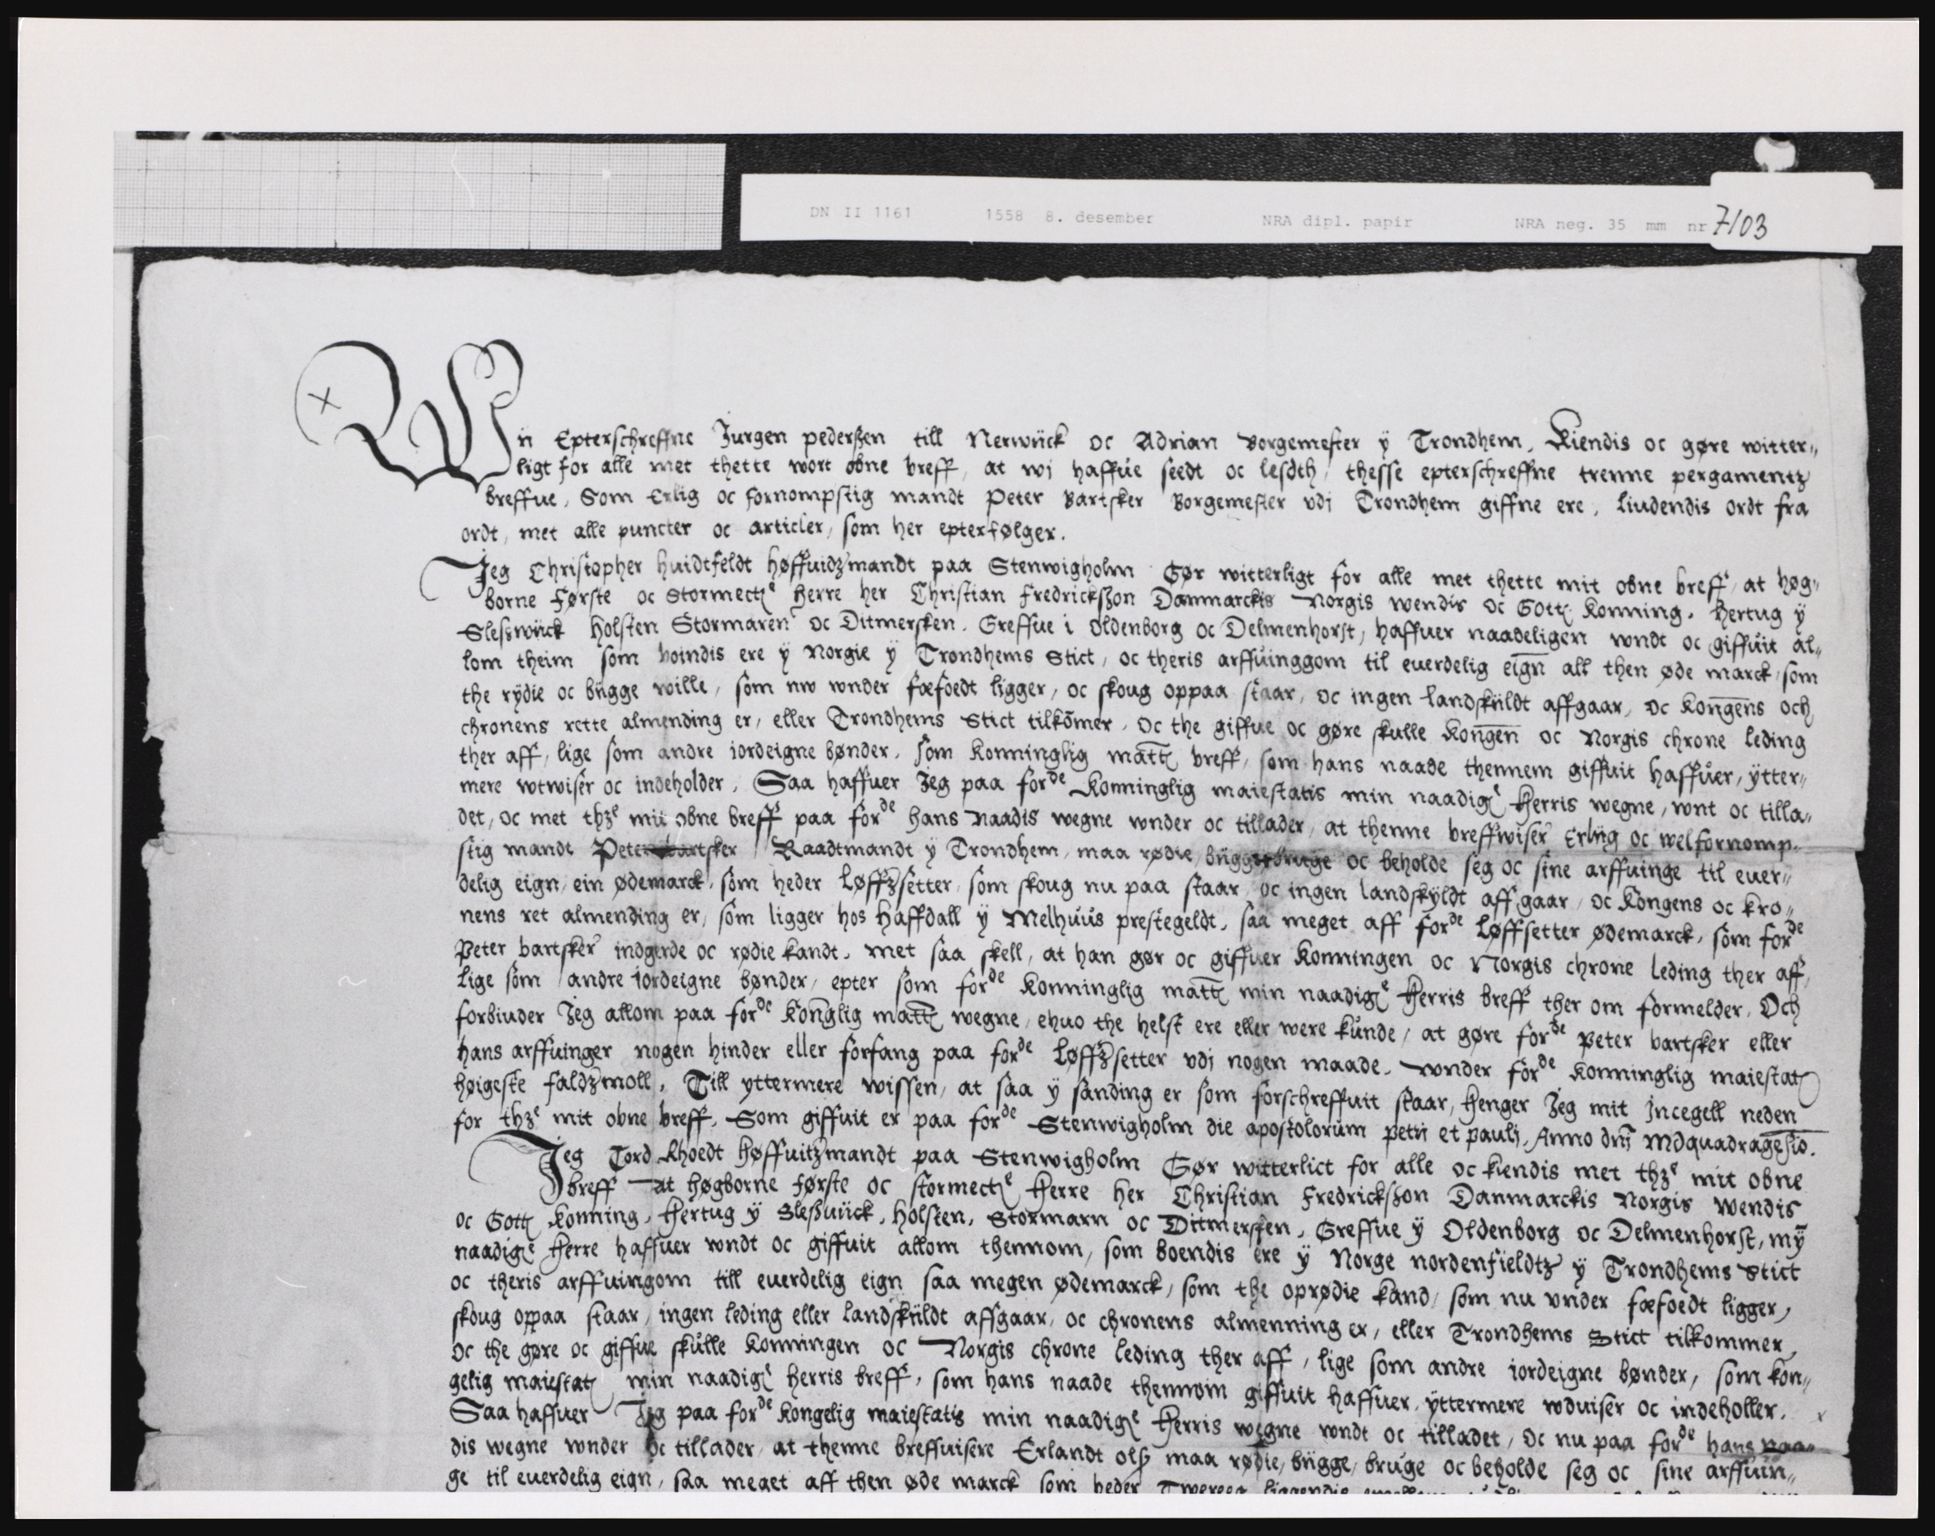 DN II 1161 1558 8. desember NRA dipl. papir NRA neg. 35 mm nr 7103
Wii Epterschreffne Jurgen pederszen till Nerwiick oc Adrian Borgemester ÿ Trondhem, Kiendis oc gøre witter„
ligt for alle met thette wort obne breff, at wj haffue seedt oc lesdth, thesse epterschreffne trenne pergamentz
breffue, Som Erlig oc fornompstig mandt Peter Bartsker Borgemester vdj Trondhem giffne ere, liudendis ordt fra
ordt, met alle puncter oc articler, som her epterfølger.
Jeg Christopher huidtfeldt høffuidzmandt paa Stenwigholm Gør witterligt for alle met thette mit obne breff, at høg„
borne Første oc Stormectie Herre her Christian Fredrickszon Danmarckis Norgis wendis oc Gottz Konning, Hertug ÿ
Slesswiick Holsten Stormaren oc Ditmersken, Greffue i oldenborg oc Delmenhorst, haffuer naadeligen wndt oc giffuit al„
lom theim som boindis ere ÿ Norgie ÿ Trondhems Stict, oc theris arffuinggom til euerdelig eign all then øde marck, som
the rÿdie oc bÿgge wille, som nw wnder fæfoedt ligger, oc skoug oppaa staar, oc ingen landskÿldt affgaar, oc Kongens och
chronens rette almending er, eller Trondhems Stict tilkomer, Oc the giffue oc gøre skulle Kongen oc Norgis chrone leding
ther aff, lige som andre iordeigne bønder, som Konninglig matt breff, som hans naade thennem giffuit haffuer, ÿtter„
mere wtwiser oc indeholder, Saa haffuer Jeg paa forde Konninglig maiestatis min naadige Herris wegne, wnt oc tilla„
det, oc met thze mit obne breff paa forde hans Naadis wegne wnder oc tillader, at thenne breffwiser Erlig oc welfornomp„
stig mandt Peter Bartsker Raadtmandt ÿ Trondhem, maa rødie, bÿgge bruge oc beholde seg oc sine arffuinge til euer„
delig eign, ein ødemarck, som heder Løffzsetter, som skoug nu paa staar, oc ingen landskÿldt aff gaar, oc Kongens oc kro„
nens ret almending er, som ligger hos Haffdall ÿ Melhuus prestegeldt, saa meget aff forde Løffsetter ødemarck, som forde
Peter bartsker indgerde oc rødie kandt, met saa skell, at han gør oc giffuer Konningen oc Norgis chrone leding ther aff,
lige som andre iordeigne bønder, epter som forde Konninglig matt min naadige Herris breff ther om formelder, Och
forbiuder Jeg allom paa forde Konglig matt wegne, ehuo the helst ere eller were kunde, at gøre forde Peter bartsker eller
hans arffuinger nogen hinder eller forfang paa forde Løffzsetter vdj nogen maade, wnder forde Konninglig maiestatz
høigeste faldzmoll. Till yttermere wissen, at saa ÿ sanding er som forschreffuit staar, Henger Jeg mit Jncegell neden
for thze mit obne breff, Som giffuit er paa forde Stenwigholm die apostolorum petri et paulj, Anno dnj Mdquadragesio.
Jeg Tord Rhoedt Høffuitzmandt paa Stenwigholm Gør witterlict for alle oc kiendis met thze mit obne
breff at høgborne Første oc stormectie Herre her Christian Fredrickszon Danmarckis Norgis Wendis
oc Gottz Konning, Hertug ÿ Sleszuiick, Holsten, Stormarn oc Ditmersken, Greffue ÿ Oldenborg oc Delmenhorst, mÿ
naadige Herre haffuer wndt oc giffuit allom thennom, som boendis ere ÿ Norge nordenfieldtz ÿ Trondhems Stict
oc theris arffuingom till euerdelig eign saa megen ødemarck, som the oprødie kand, som nu vnder fæfoedt ligger,
skoug oppaa staar, ingen leding eller landskÿldt affgaar, oc chronens almenning er, eller Trondhems Stict tilkommer,
Oc the gøre oc giffue skulle Konningen oc Norgis chrone leding ther aff, lige som andre iordeigne bønder, som kon„
gelig maiestatz min naadige Herris breff, som hans naade thennom giffuit haffuer, ÿttermere wduiser oc indeholler.
Saa haffuer Jeg paa forde Kongelig maiestatis min naadige Herris wegne wndt oc tilladet, Oc nu paa forde hans naa„
dis wegne wnder oc tillader, at thenne breffuisere Erlandt olsz maa rødie, bÿgge, bruge oc beholde seg oc sine arffuin„
ge til euerdelig eign, saa meget aff then øde marck som heder